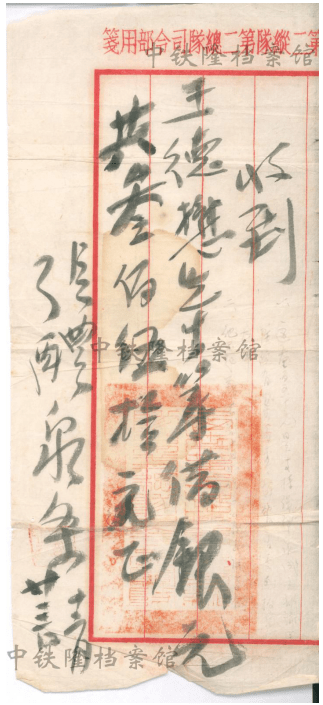 第二縱隊第二總隊司令部用箋
收到
王德懋先生筹借銀元
共叁佰伍拾元正
張醴泉条
廿三日
中铁隆档案馆
中铁隆档案馆
中铁隆档案馆